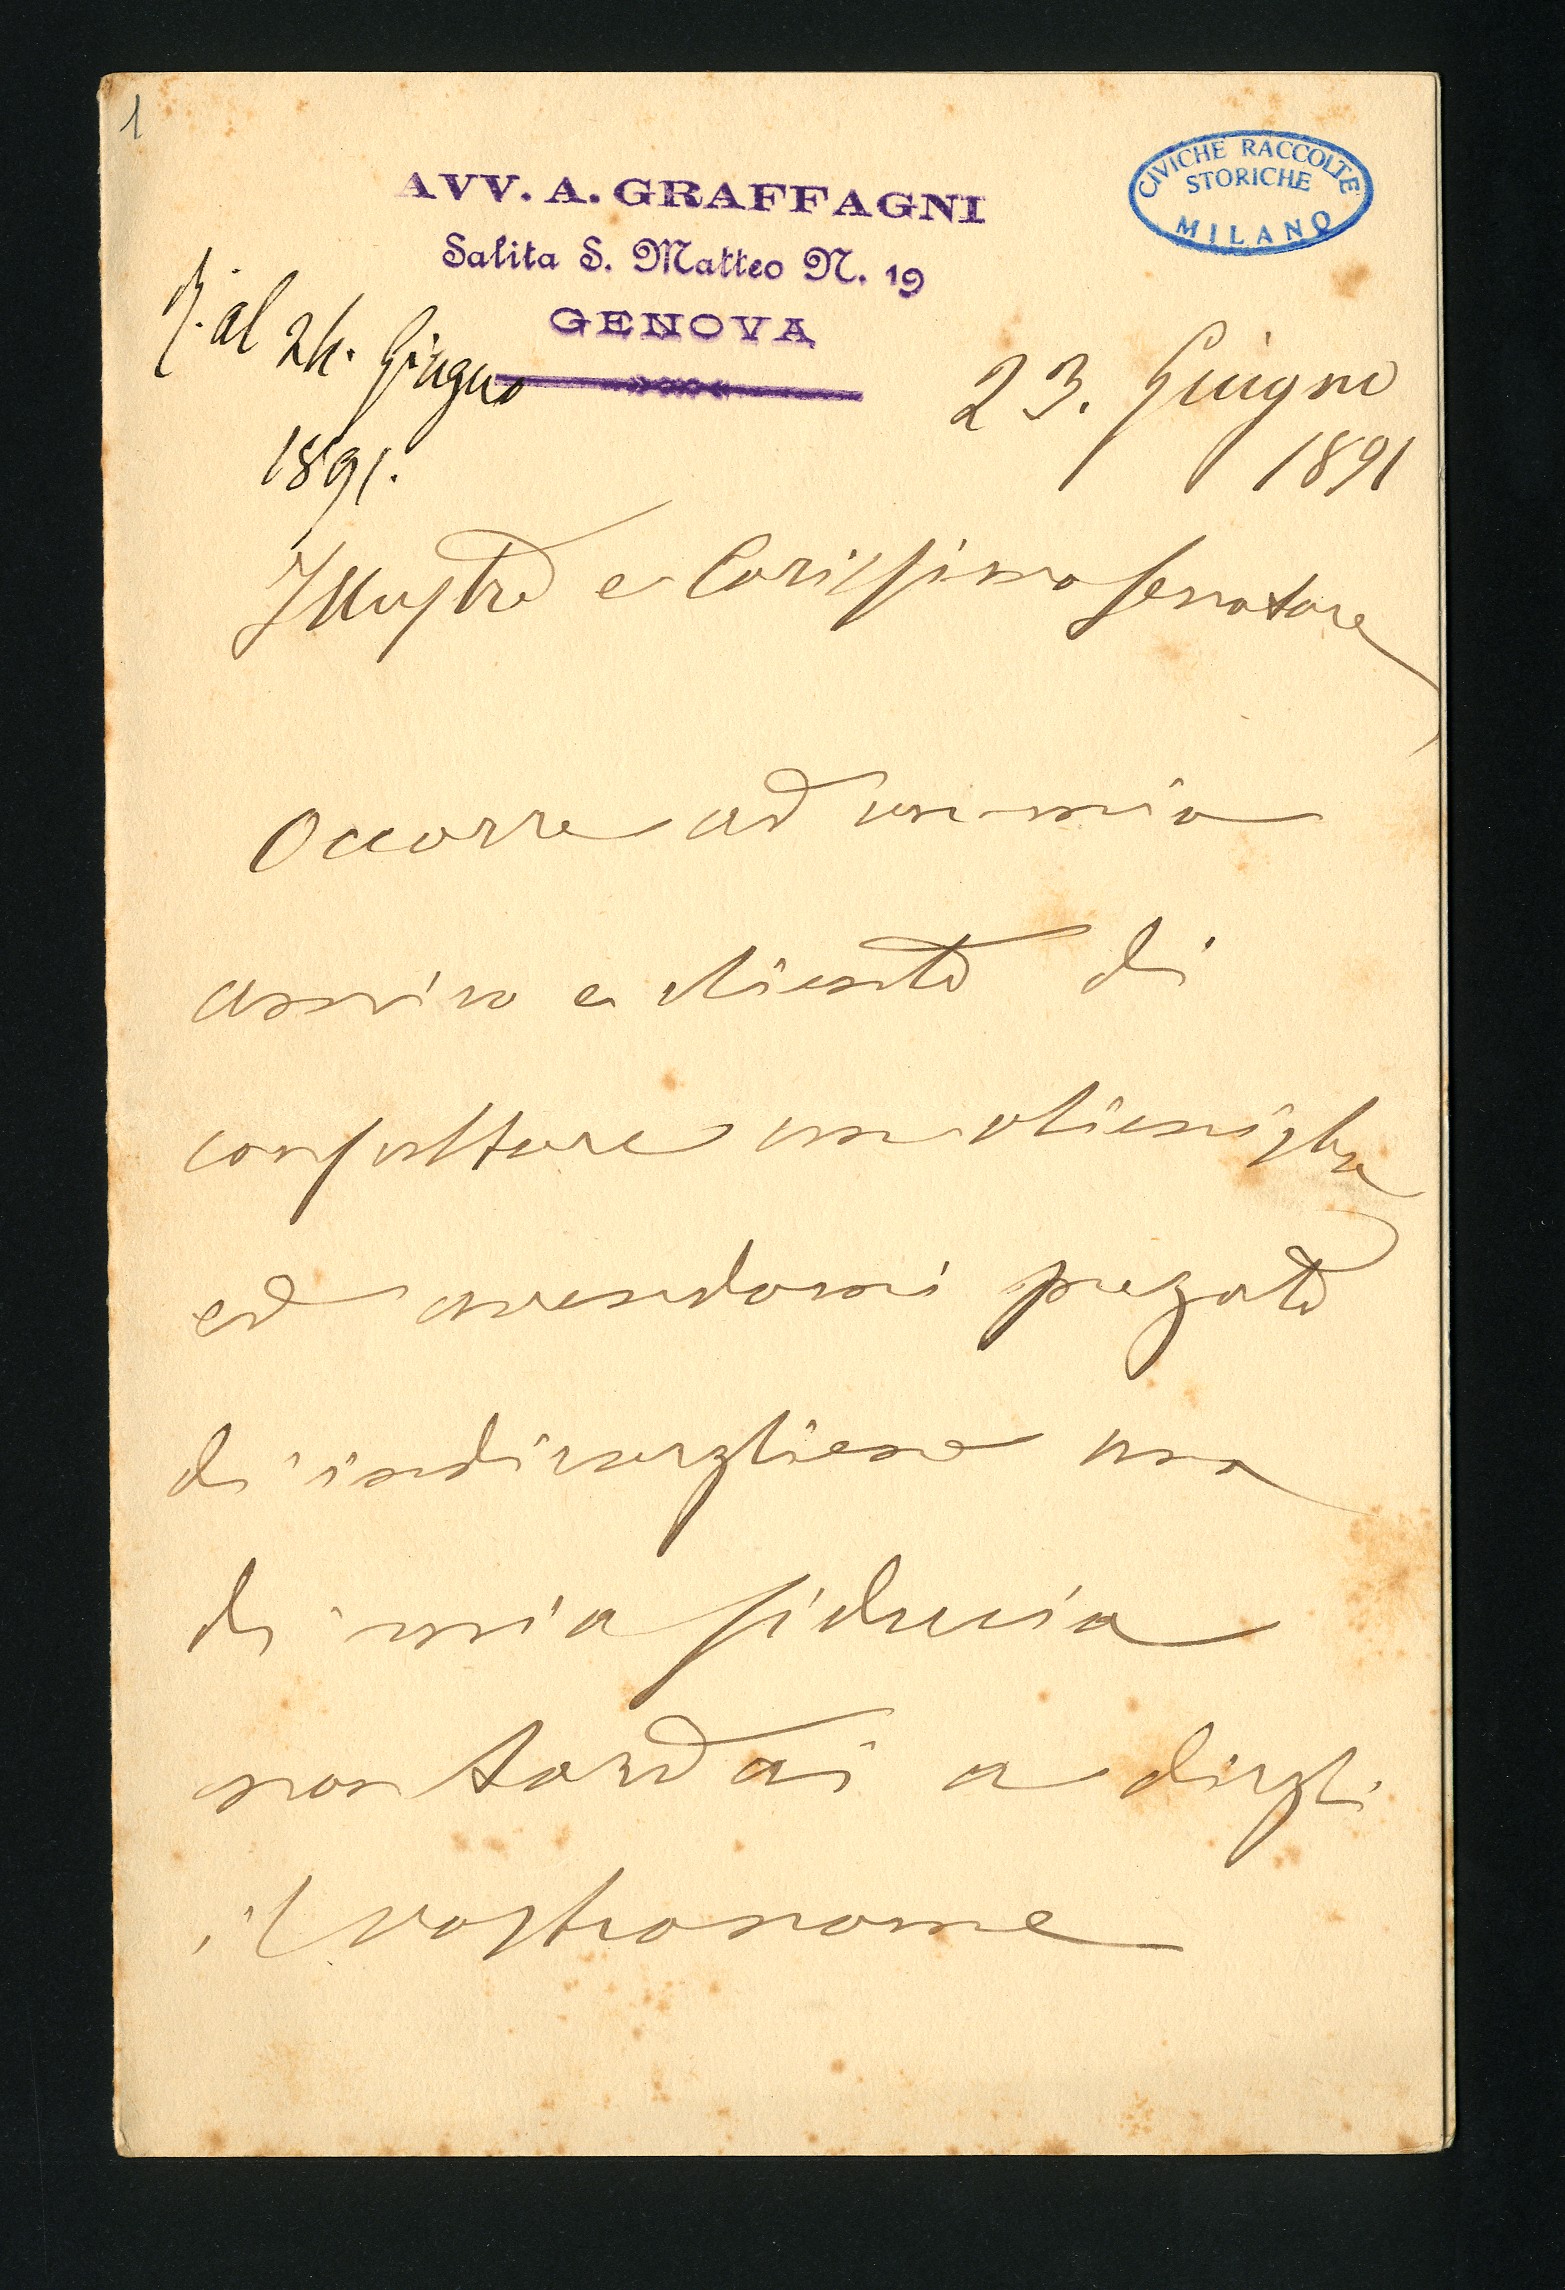 1
AVV. A. GRAFFAGNI
Salita S. Matteo N. 19
GENOVA
CIVICHE RACCOLTE
STORICHE
MILANO
R. al 24. Giugno
1891.
23. Giugno
1891
Illustre e Carissimo Senatore
Occorre ad un mio
amico e cliente di
consultare un alienista
ed avendomi pregato
di indicargliene uno
di mia fiducia
non tardai a dirgli
il vostro nome